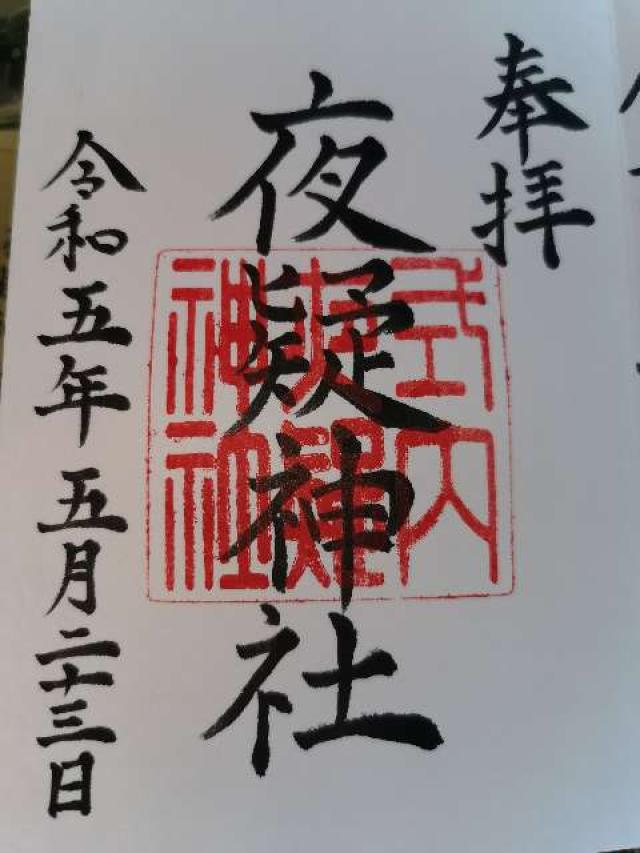 奉拝
夜疑神社
式内
夜疑
神社
令和五年五月二十三日